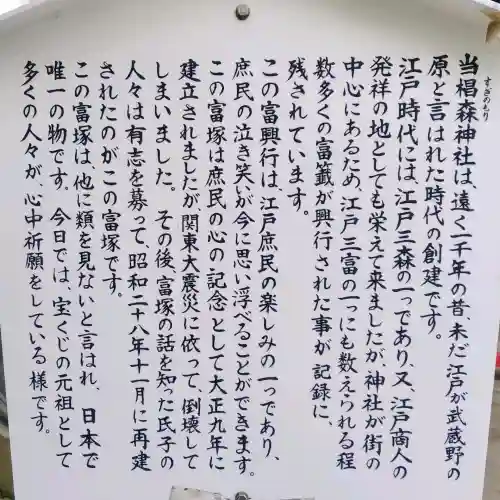 当椙森神社は、遠く一千年の昔、未だ江戸が武蔵野の
すぎのもり
原と言はれた時代の創建です。
江戸時代には、江戸三森の一つであり、又、江戸商人の
発祥の地としても栄えて来ましたが、神社が街の
中心にあるため、江戸三富の一つにも数えられる程
数多くの富籤が興行された事が、記録に、
残されています。
この富興行は、江戸庶民の楽しみの一つであり、
庶民の泣き笑いが今に思い浮べることができます。
この富塚は庶民の心の記念として大正九年に
建立されましたが関東大震災に依って、倒壊して
しまいました。その後、富塚の話を知った氏子の
人々は有志を募って、昭和二十八年十一月に再建
されたのがこの富塚です。
この富塚は、他に類を見ないと言はれ、日本で
唯一の物です。今日では、宝くじの元祖として
多くの人々が、心中祈願をしている様です。